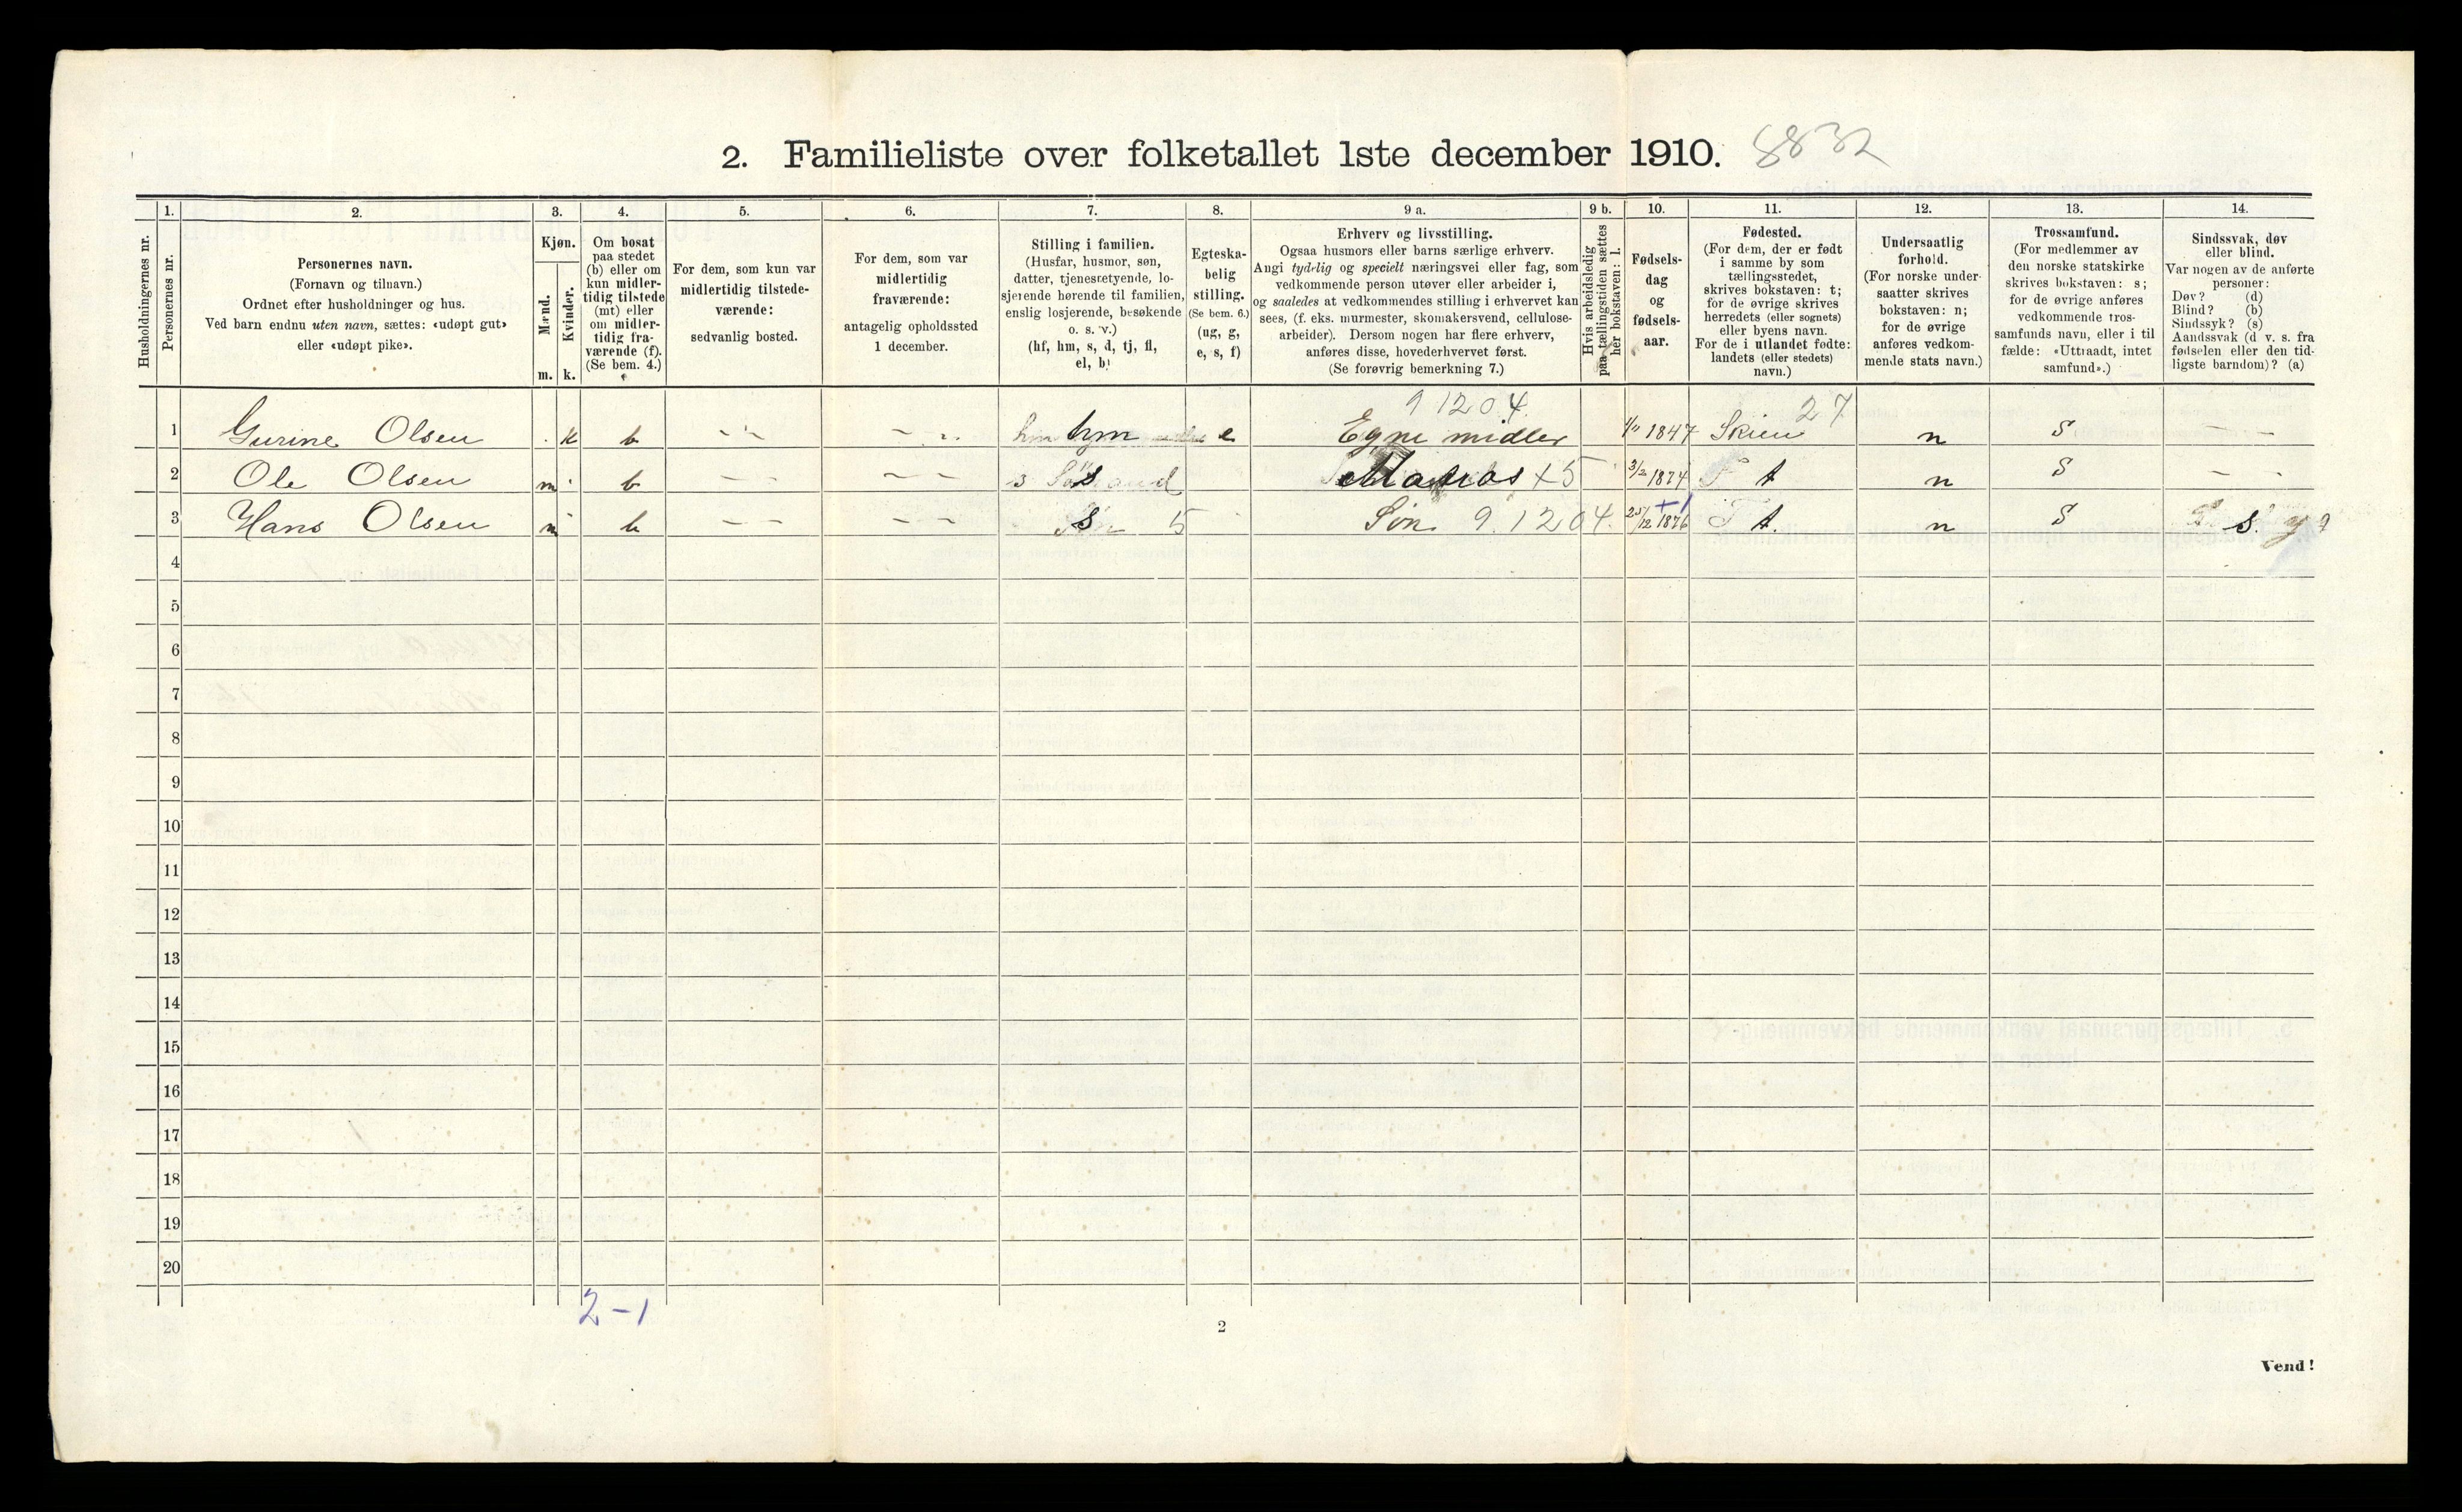 2. Familieliste over folketallet 1ste december 1910. 8832
Husholdningernes nr.
1.
Personernes nr.
2.
Personernes navn.
(Fornavn og tilnavn.)
Ordnet efter husholdninger og hus.
Ved barn endnu uten navn, sættes: «udøpt gut»
eller «udøpt pike».
3.
Kjøn.
Mænd.
Kvinder.
m. k.
4.
Om bosat
paa stedet
(b) eller om
kun midler-
tidig tilstede
(mt) eller
om midler-
tidig fra-
værende (f).
(Se bem. 4.)
5.
For dem, som kun var
midlertidig tilstede-
værende:
sedvanlig bosted.
6.
For dem, som var
midlertidig
fraværende:
antagelig opholdssted
1 december.
7.
Stilling i familien.
(Husfar, husmor, søn,
datter, tjenestetyende, lo-
sjerende hørende til familien,
enslig losjerende, besøkende
o. s. v.)
(hf, hm, s, d, tj, fl,
el, b)
8.
Egteska-
belig
stilling.
(Se bem. 6.)
(ug, g,
e, s, f)
9 a.
Erhverv og livsstilling.
Ogsaa husmors eller barns særlige erhverv.
Angi tydelig og specielt næringsvei eller fag, som
vedkommende person utøver eller arbeider i,
og saaledes at vedkommendes stilling i erhvervet kan
sees, (f. eks. murmester, skomakersvend, cellulose-
arbeider). Dersom nogen har flere erhverv,
anføres disse, hovederhvervet først.
(Se forøvrig bemerkning 7.)
9 b.
Hvis arbeidsledig
paa tællingstiden sættes
her bokstaven: l.
10.
Fødsels-
dag
og
fødsels-
aar.
11.
Fødested.
(For dem, der er født
i samme by som
tællingsstedet,
skrives bokstaven: t;
for de øvrige skrives
herredets (eller sognets)
eller byens navn.
For de i utlandet fødte:
landets (eller stedets)
navn.)
12.
Undersaatlig
forhold.
(For norske under-
saatter skrives
bokstaven: n;
for de øvrige
anføres vedkom-
mende stats navn.)
13.
Trossamfund.
(For medlemmer av
den norske statskirke
skrives bokstaven: s;
for de øvrige anføres
vedkommende tros-
samfunds navn, eller i til
fælde: «Uttraadt, intet
samfund».)
14.
Sindssvak, døv
eller blind.
Var nogen av de anførte
personer:
Døv? (d)
Blind? (b)
Sindssyk? (s)
Aandssvak (d v. s. fra
fødselen eller den tid-
ligste barndom)? (a)
9 1204. 27
1 Gurine Olsen k b hm e Egne midler 1847 Skien n S
2 Ole Olsen m b s Matros x5 3/2 1874 t n S
3 Hans Olsen m b s 5 Søn 9.1204. 25/12 1876 t. n S s.
4
5
6
7
8
9
10
11
12
13
14
15
16
17
18
19
20
2-1
2
Vend!